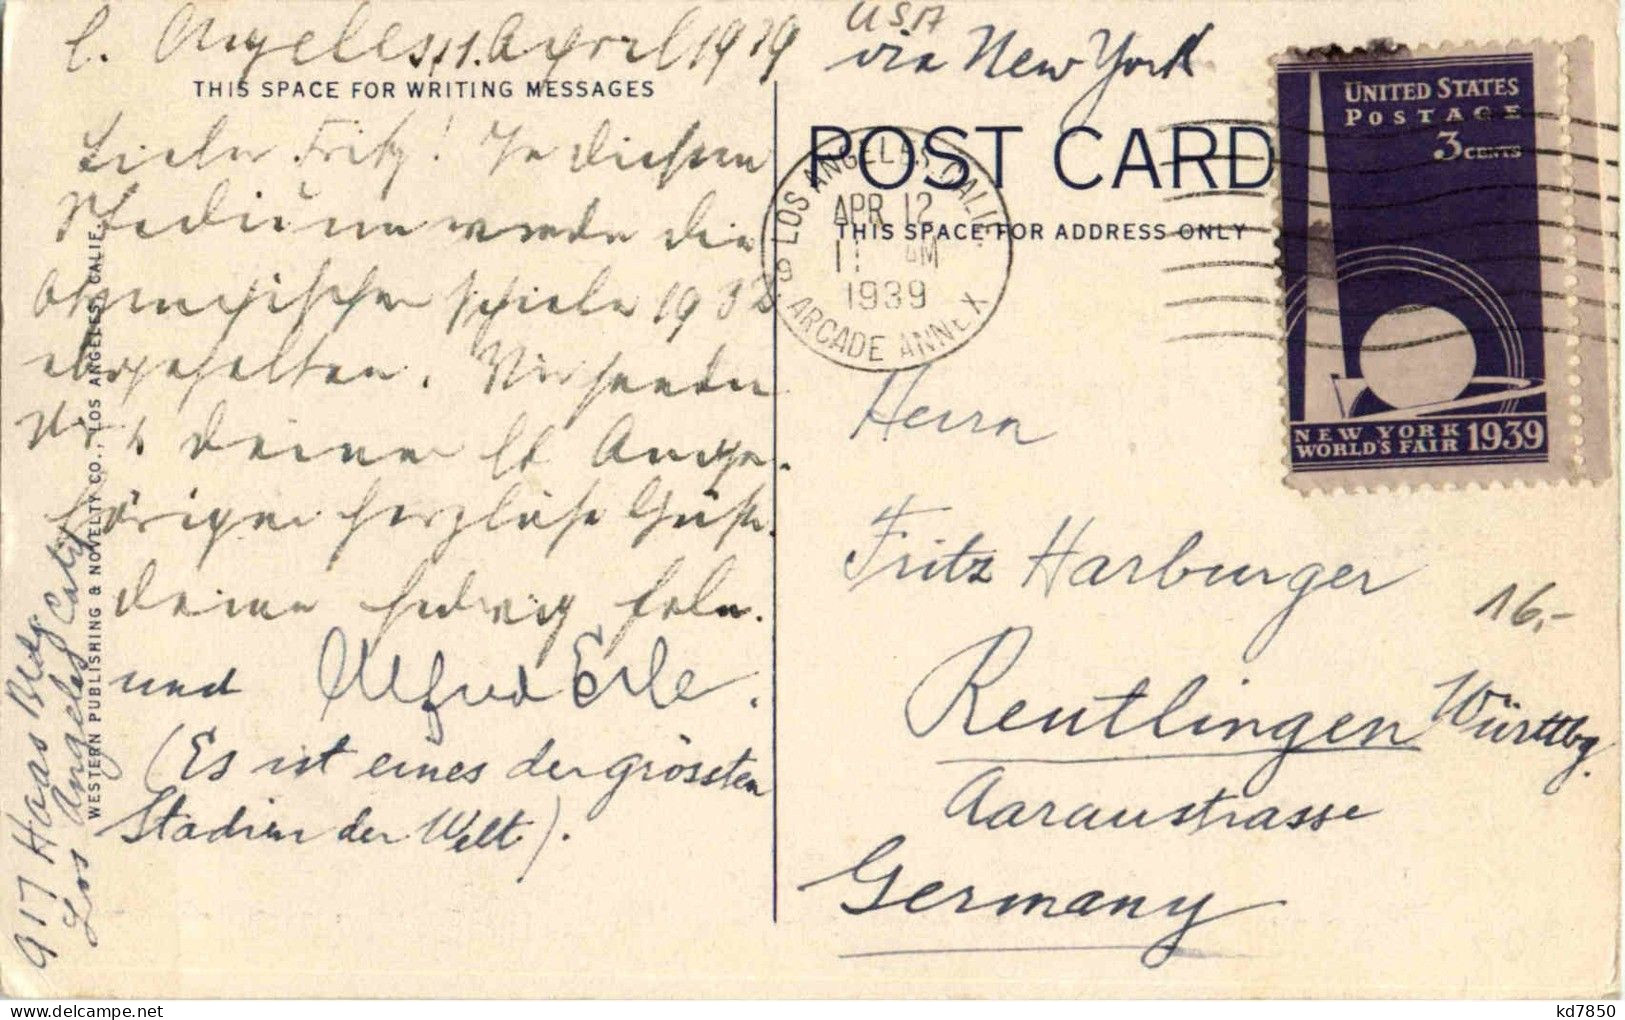 L. Angeles, 11. April 1939
THIS SPACE FOR WRITING MESSAGES
Lieber Fritz! In diesem
Stadium wurden die
Olympischen Spiele 1932
abgehalten. Wir senden
Dir & deinen lb. Ange-
hörigen herzliche Grüße.
Deine Hedwig Erle
und Alfred Erle.
(Es ist eines der grössten
Stadien der Welt).
917 Haas Bldg.
Los Angeles Calif
WESTERN PUBLISHING & NOVELTY CO., LOS ANGELES, CALIF.
USA
via New York
POST CARD
THIS SPACE FOR ADDRESS ONLY
LOS ANGELES, CALIF.
APR 12
11 AM
1939
ARCADE ANNEX
9
UNITED STATES
POSTAGE
3 CENTS
NEW YORK
WORLD'S FAIR 1939
Herrn
Fritz Harburger
16,-
Reutlingen Württbg.
Aaraustrasse
Germany
kd7850